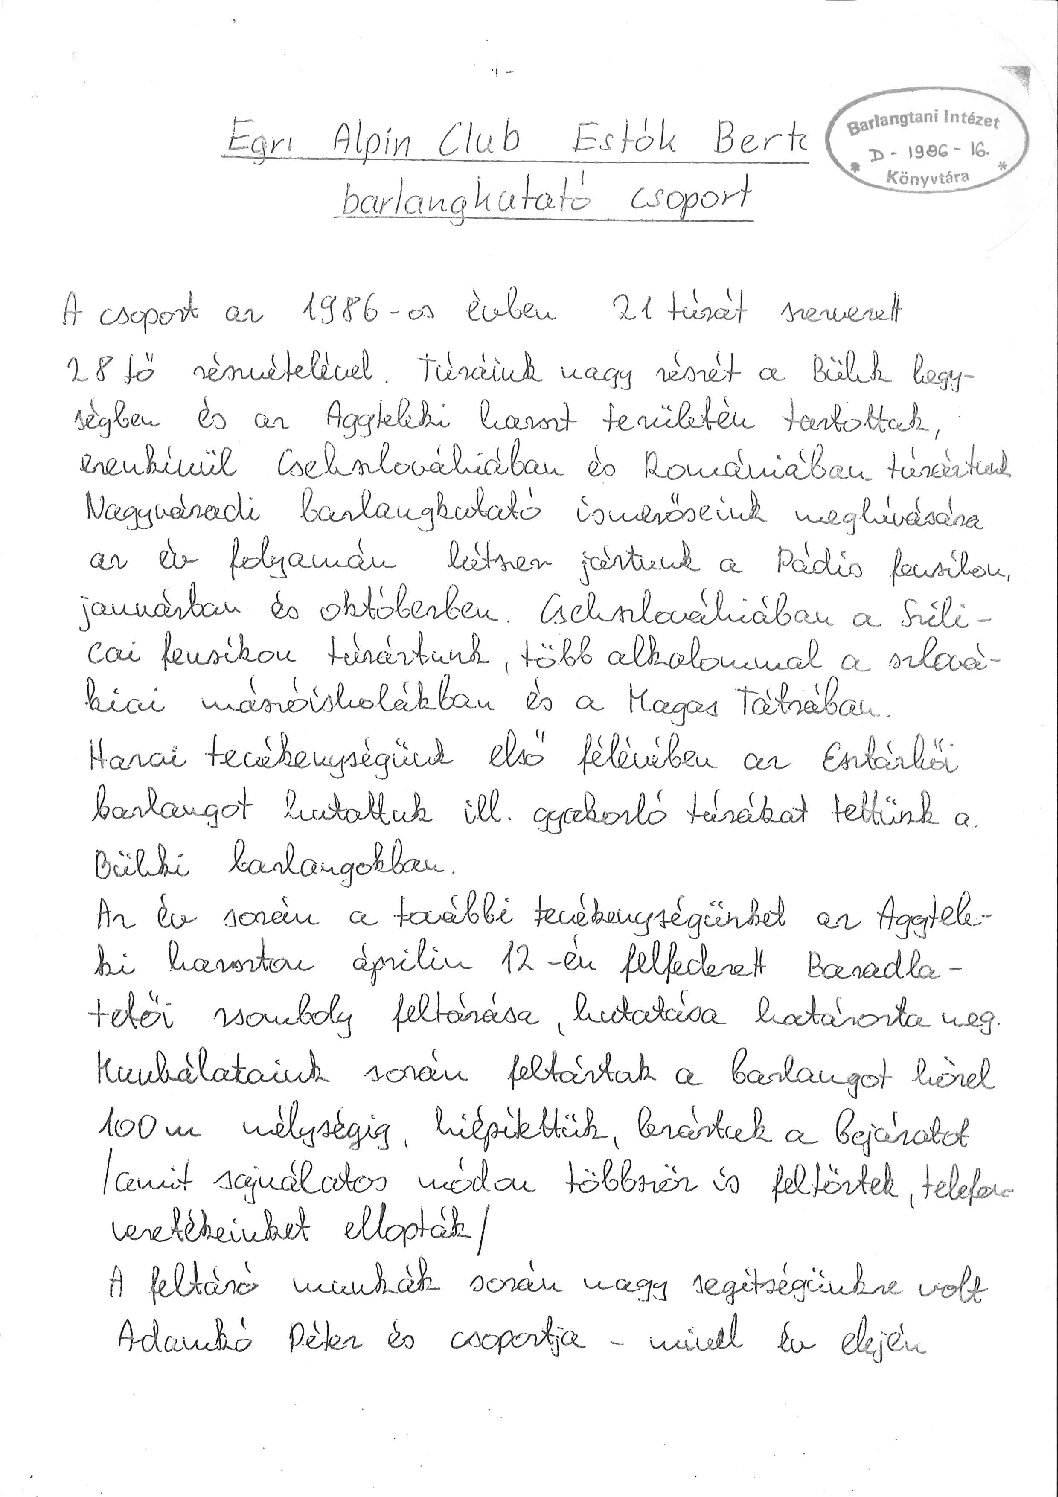 Egri Alpin Club Estók Berta
barlangkutató csoport
Barlangtani Intézet
D - 1986 - 16.
Könyvtára
A csoport az 1986-os évben 21 túrát szervezett
28 fő részvételével. Túráink nagy részét a Bükk hegy-
ségben és az Aggteleki karszt területén tartottak,
ezenkívül Csehszlovákiában és Romániában túráztunk
Nagyváradi barlangkutató ismerőseink meghívására
az év folyamán kétszer jártunk a Pádis fensíkon,
januárban és októberben. Csehszlovákiában a Szili-
cai fensíkon túráztunk, több alkalommal a szlová-
kiai mászóiskolákban és a Magas Tátrában.
Hazai tevékenységünk első félévében az Esztáskői
barlangot kutattuk ill. gyakorló túrákat tettünk a
Bükki barlangokban.
Az év során a további tevékenységünket az Aggtele-
ki karszton április 12-én felfedezett Baradla-
tetői zsomboly feltárása, kutatása határozta meg.
Munkálataink során feltártuk a barlangot közel
100 m mélységig, kiépítettük, lezártuk a bejáratot
/amit sajnálatos módon többször is feltörtek, telefon
vezetékeinket ellopták/
A feltáró munkák során nagy segítségünkre volt
Adamkó Péter és csoportja - mivel év elején